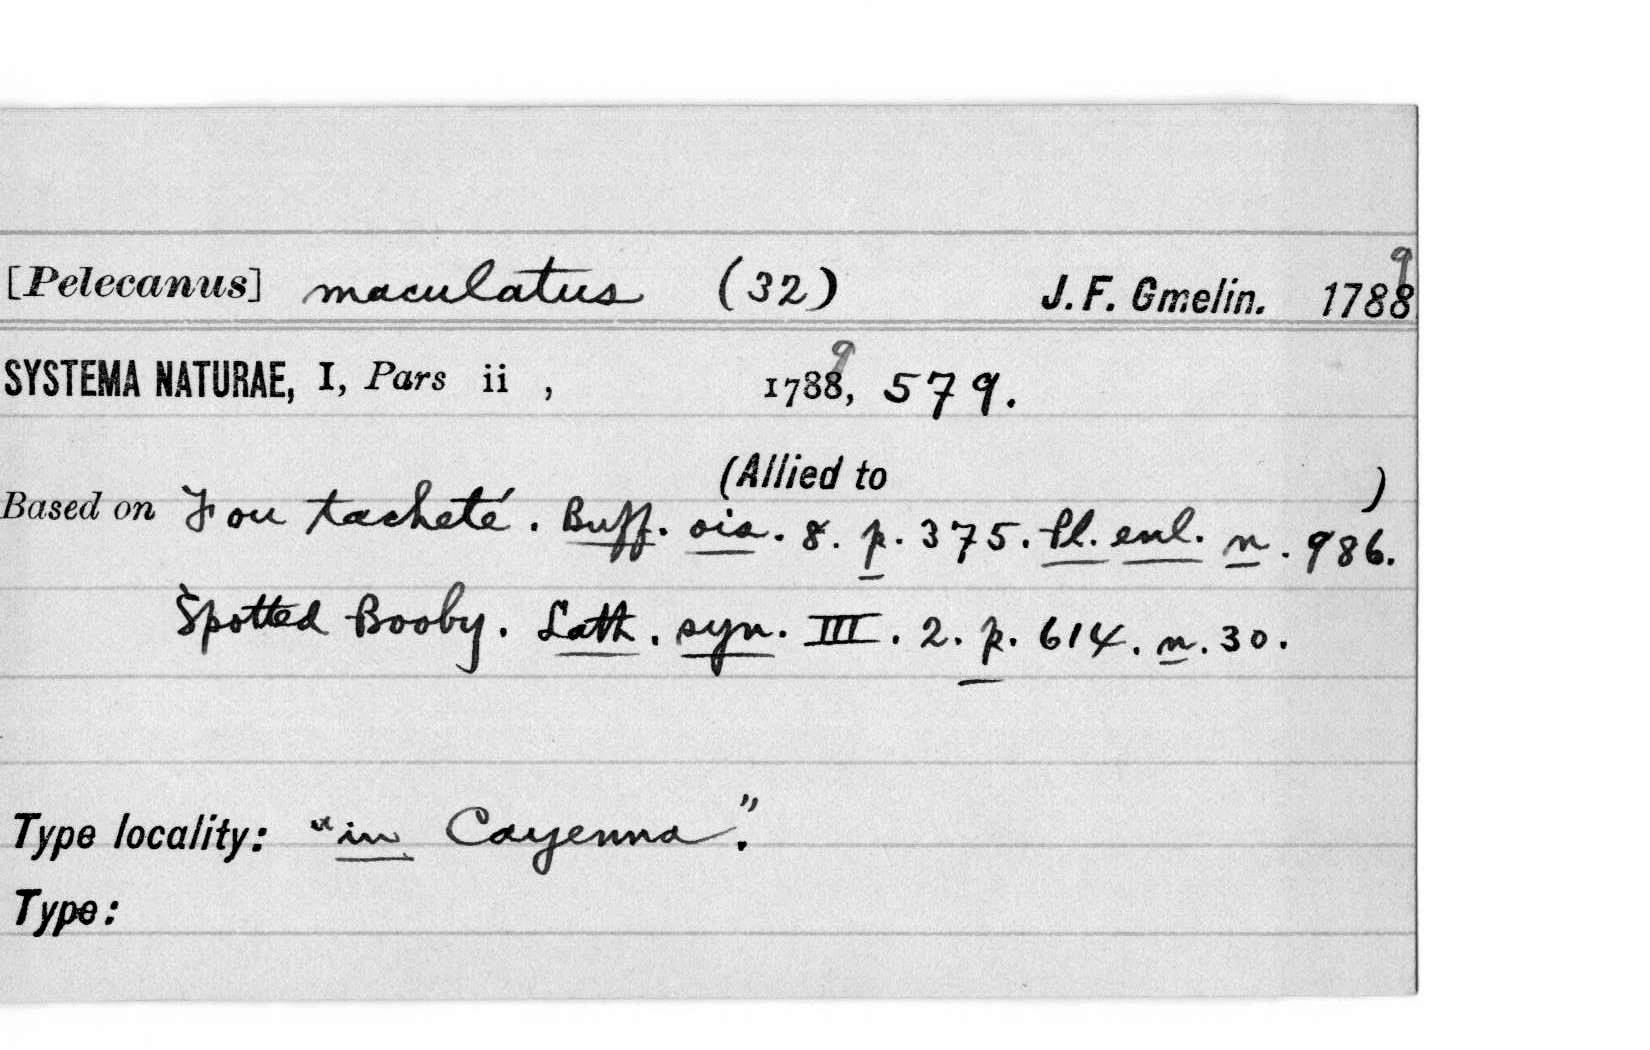 [Pelecanus] maculatus (32) J. F. Gmelin. 1788 9
SYSTEMA NATURAE, I, Pars ii , 1788 9, 579.
(Allied to )
Based on Fou tacheté. Buff. ois. 8. p. 375. Pl. enl. n. 986.
Spotted Booby. Lath. syn. III. 2. p. 614. n. 30.
Type locality: "in Cayenna".
Type: